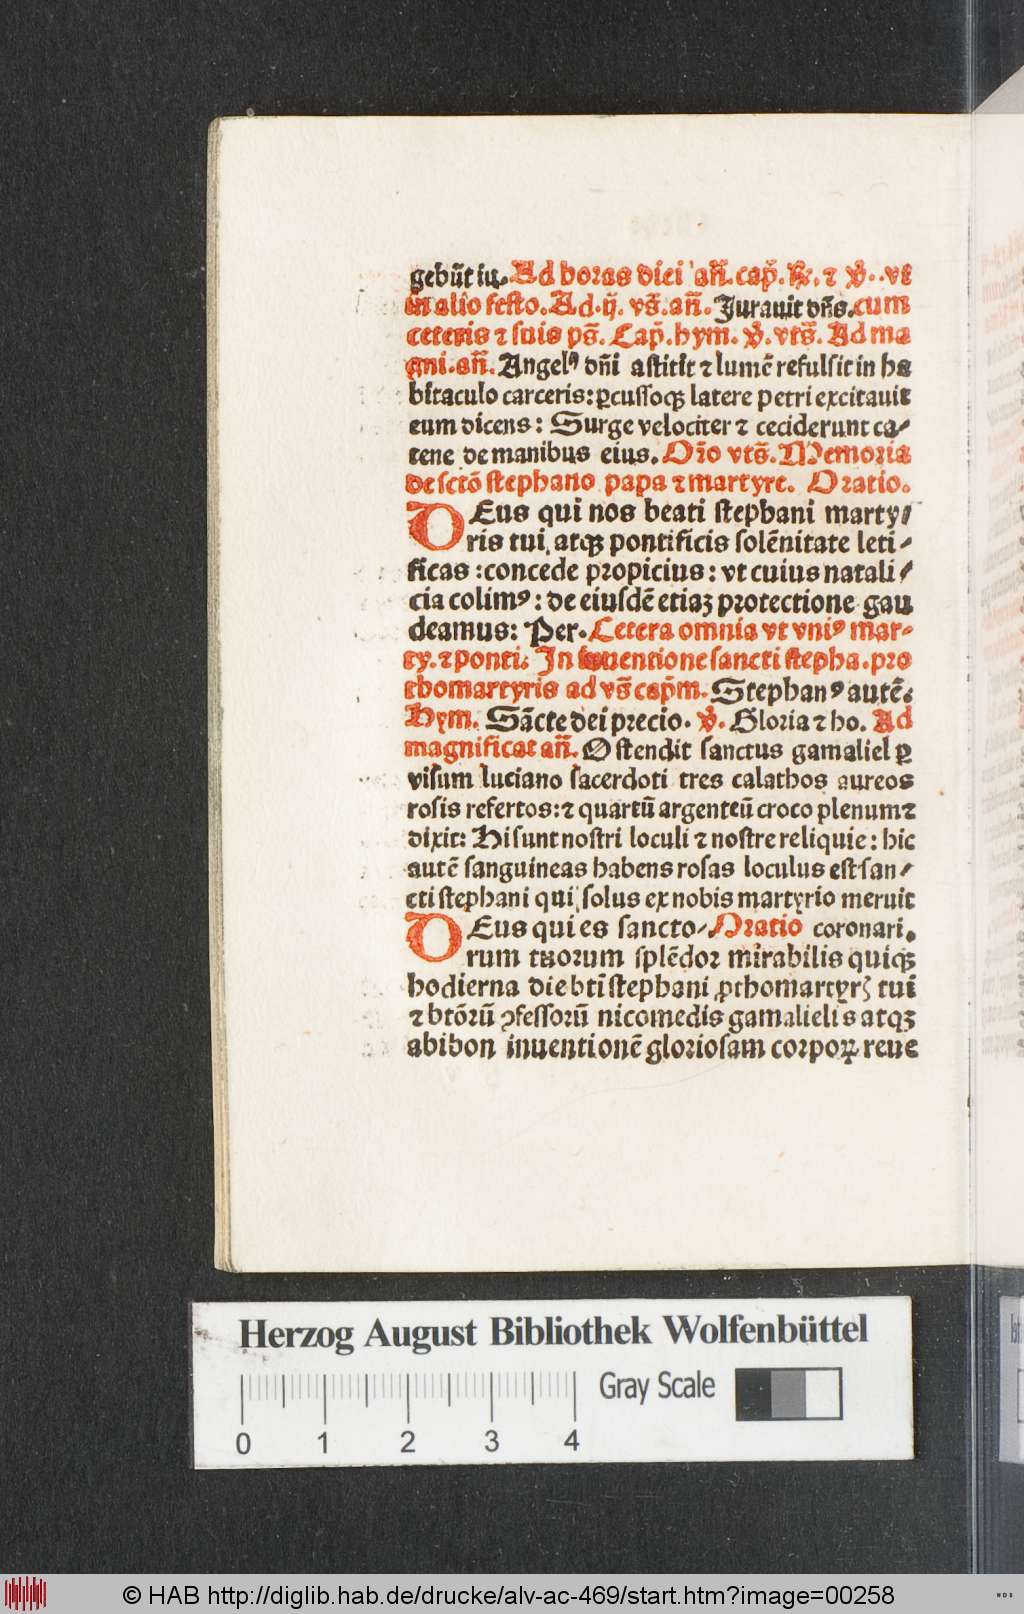 gebūt iu. Ad horas diei an̄. cap̄. R̄. ⁊ v̄. vt
in alio festo. Ad .ij. vs̄. an̄. Jurauit dn̄s. cum
ceteris ⁊ suis ps̄. Cap̄. hym. v̄. vts̄. Ad ma
gni. an̄. Angelꝰ dn̄i astitit ⁊ lumē refulsit in ha
bitaculo carceris: ꝑcussoqꝫ latere petri excitauit
eum dicens: Surge velociter ⁊ ceciderunt ca⸗
tene de manibus eius. Or̄o vts̄. Memoria
de sctō stephano papa ⁊ martyre. Oratio.
DEus qui nos beati stephani marty⸗
ris tui atqꝫ pontificis solēnitate leti⸗
ficas: concede propicius: vt cuius natali⸗
cia colimꝰ: de eiusdē etiaꝫ protectione gau
deamus: Per. Cetera omnia vt vniꝰ mar⸗
ty. ⁊ ponti. In inuentione sancti stepha. pro
thomartyris ad vs̄ cap̄m. Stephanꝰ autē.
Hym. Sācte dei precio. v̄. Gloria ⁊ ho. Ad
magnificat an̄. Ostendit sanctus gamaliel ꝑ
visum luciano sacerdoti tres calathos aureos
rosis refertos: ⁊ quartū argenteū croco plenum ⁊
dixit: Hi sunt nostri loculi ⁊ nostre reliquie: hic
autē sanguineas habens rosas loculus est san⸗
cti stephani qui solus ex nobis martyrio meruit
DEus qui es sancto⸗ Oratio coronari.
rum tuorum splēdor mirabilis quiqꝫ
hodierna die btī stephani ꝓthomartyrꝭ tui
⁊ btōrū ꝯfessorū nicomedis gamalielis atqꝫ
abibon inuentionē gloriosam corpoꝝ reue
Herzog August Bibliothek Wolfenbüttel
Gray Scale
0 1 2 3 4
© HAB http://diglib.hab.de/drucke/alv-ac-469/start.htm?image=00258